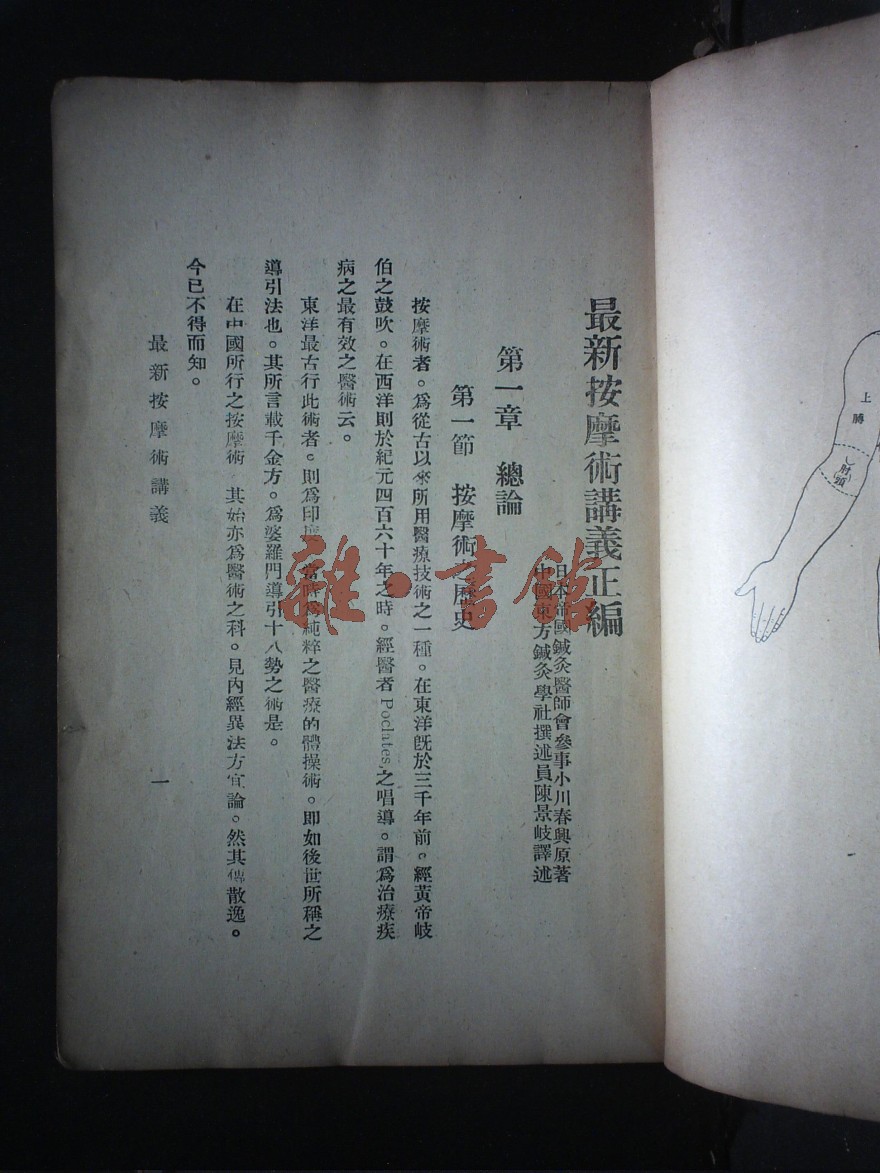 最新按摩術講義正編
日本帝國鍼灸醫師會參事小川春興原著
中國東方鍼灸學社撰述員陳景岐譯述
第一章　總論
第一節　按摩術之歷史
按摩術者。爲從古以來所用醫療技術之一種。在東洋旣於三千年前。經黃帝岐
伯之鼓吹。在西洋則於紀元四百六十年之時。經醫者Poclates.之唱導。謂爲治療疾
病之最有效之醫術云。
東洋最古行此術者。則爲印度。當時爲純粹之醫療的體操術。即如後世所稱之
導引法也。其所言載千金方。爲婆羅門導引十八勢之術是。
在中國所行之按摩術　其始亦爲醫術之科。見內經異法方宜論。然其傳散逸。
今已不得而知。
最新按摩術講義
一
上膊
肘頭
雜·書館